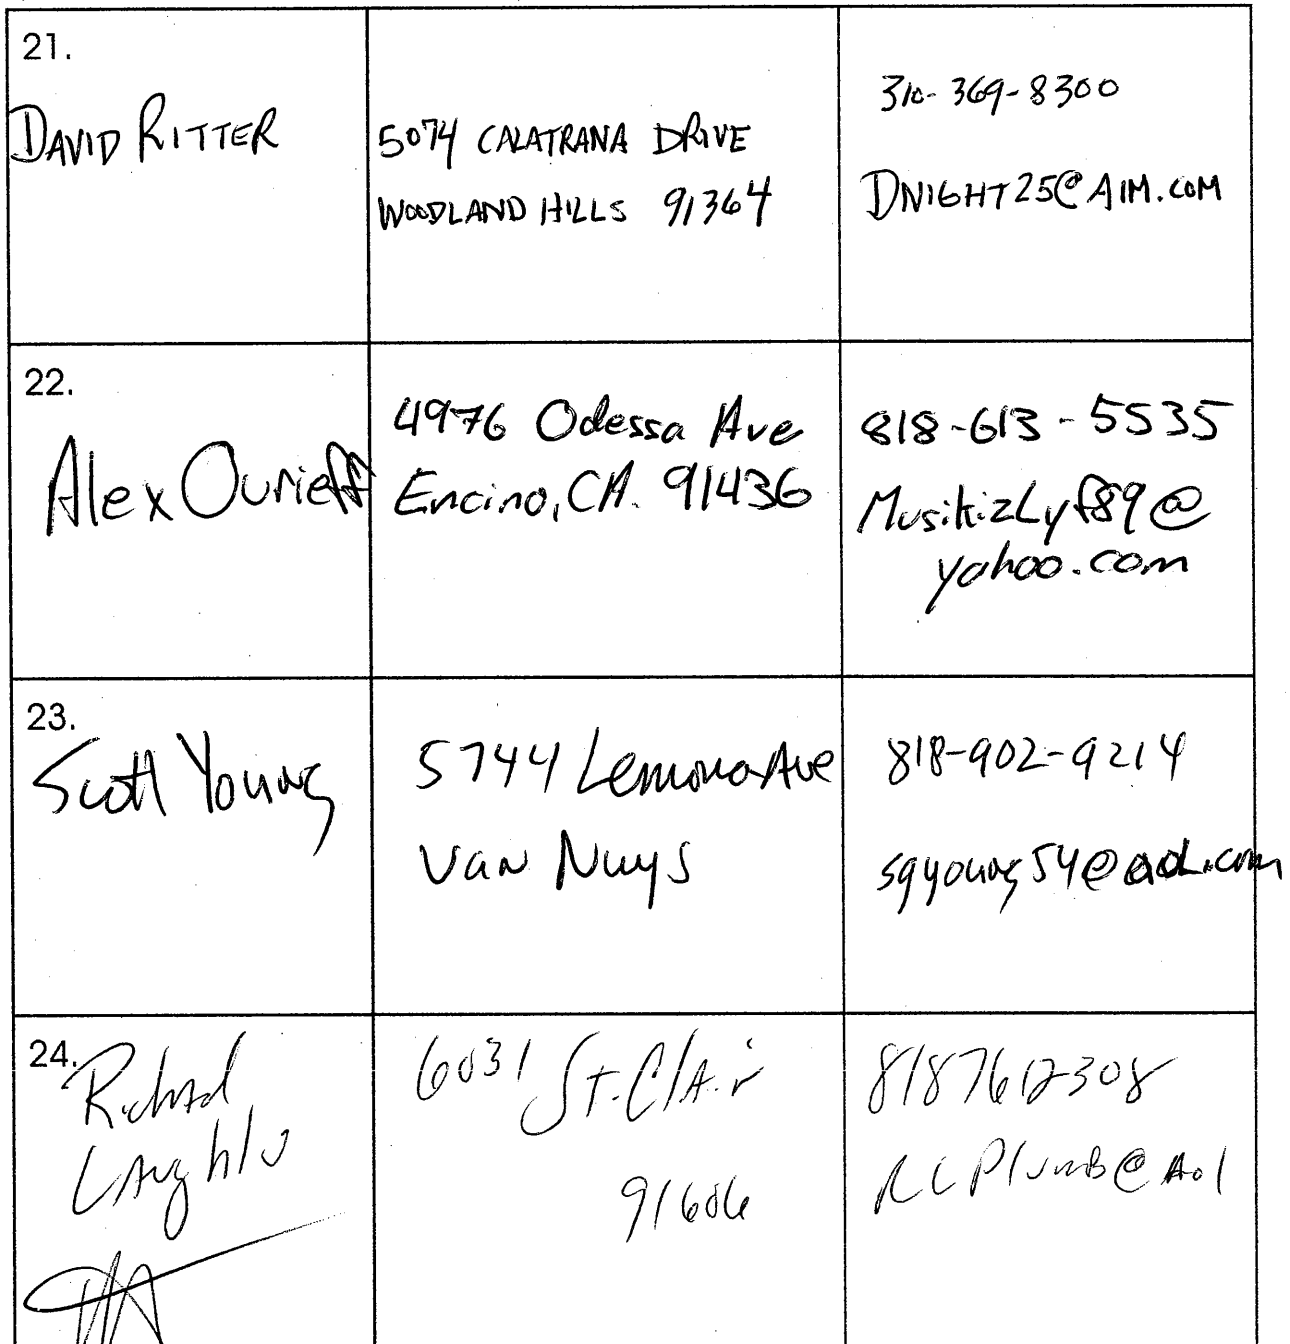 21.
DAVID RITTER
5074 CALATRANA DRIVE
WOODLAND HILLS 91364
310-369-8300
DNIGHT25@AIM.COM
22.
Alex Ourieff
4976 Odessa Ave
Encino, CA. 91436
818-613-5535
MusikizLyf89@
yahoo.com
23.
Scott Young
5744 Lemona Ave
Van Nuys
818-902-9214
sgyoung54@aol.com
24.
Richard
Laughlin
6031 St. Clair
91606
8187612308
RLPlumb@Aol